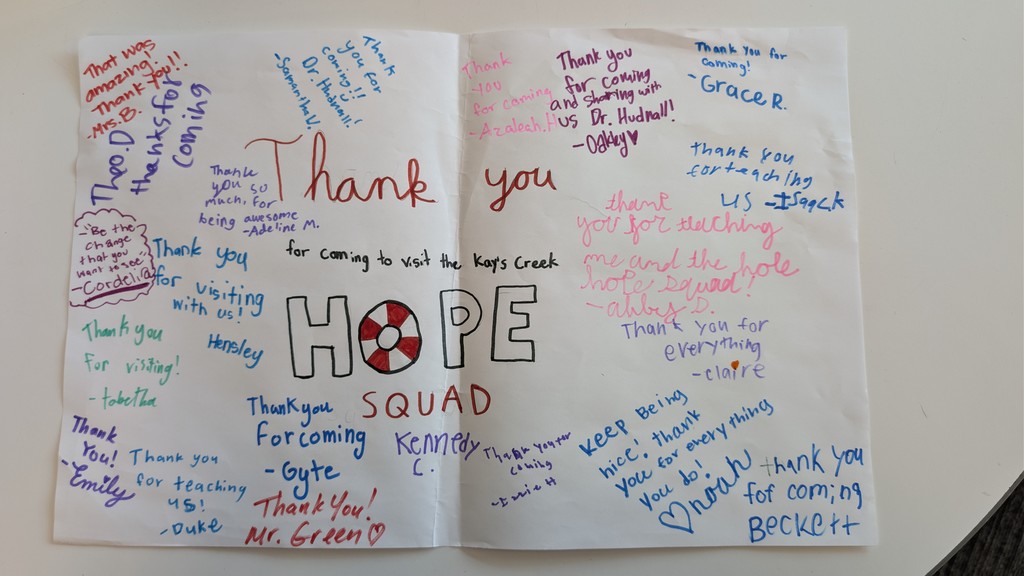 That was
amazing!
Thank You!!
-Mrs. B.
Theo.D
thanks for
coming
Thank
you for
coming!!
Dr. Hudnall!
-Samantha V.
Thank
you
for coming
-Azaleah.H
Thank you
for coming
and sharing with
us Dr. Hudnall!
-Oakley
Thank you for
coming!
-Grace R.
Thank you
for teaching
us -Isaac.K
Thank you
for coming to visit the Kay's Creek
HOPE
SQUAD
Thank
you so
much, for
being awesome
-Adeline M.
"Be the
change
that you
want to see"
-Cordelia
Thank you
for visiting
with us!
Hensley
thank
you for teaching
me and the hole
hole squad!
-abby D.
Thank you for
everything
-claire
Thank you
for visiting!
-tabetha
Thank
You!
-Emily
Thank you
for teaching
us!
-Duke
Thank you
for coming
-Gyte
Thank You!
Mr. Green
Kennedy
C.
Thank you for
coming
Keep being
nice! thank
you for everything
you do!
noah
thank you
for coming
Beckett